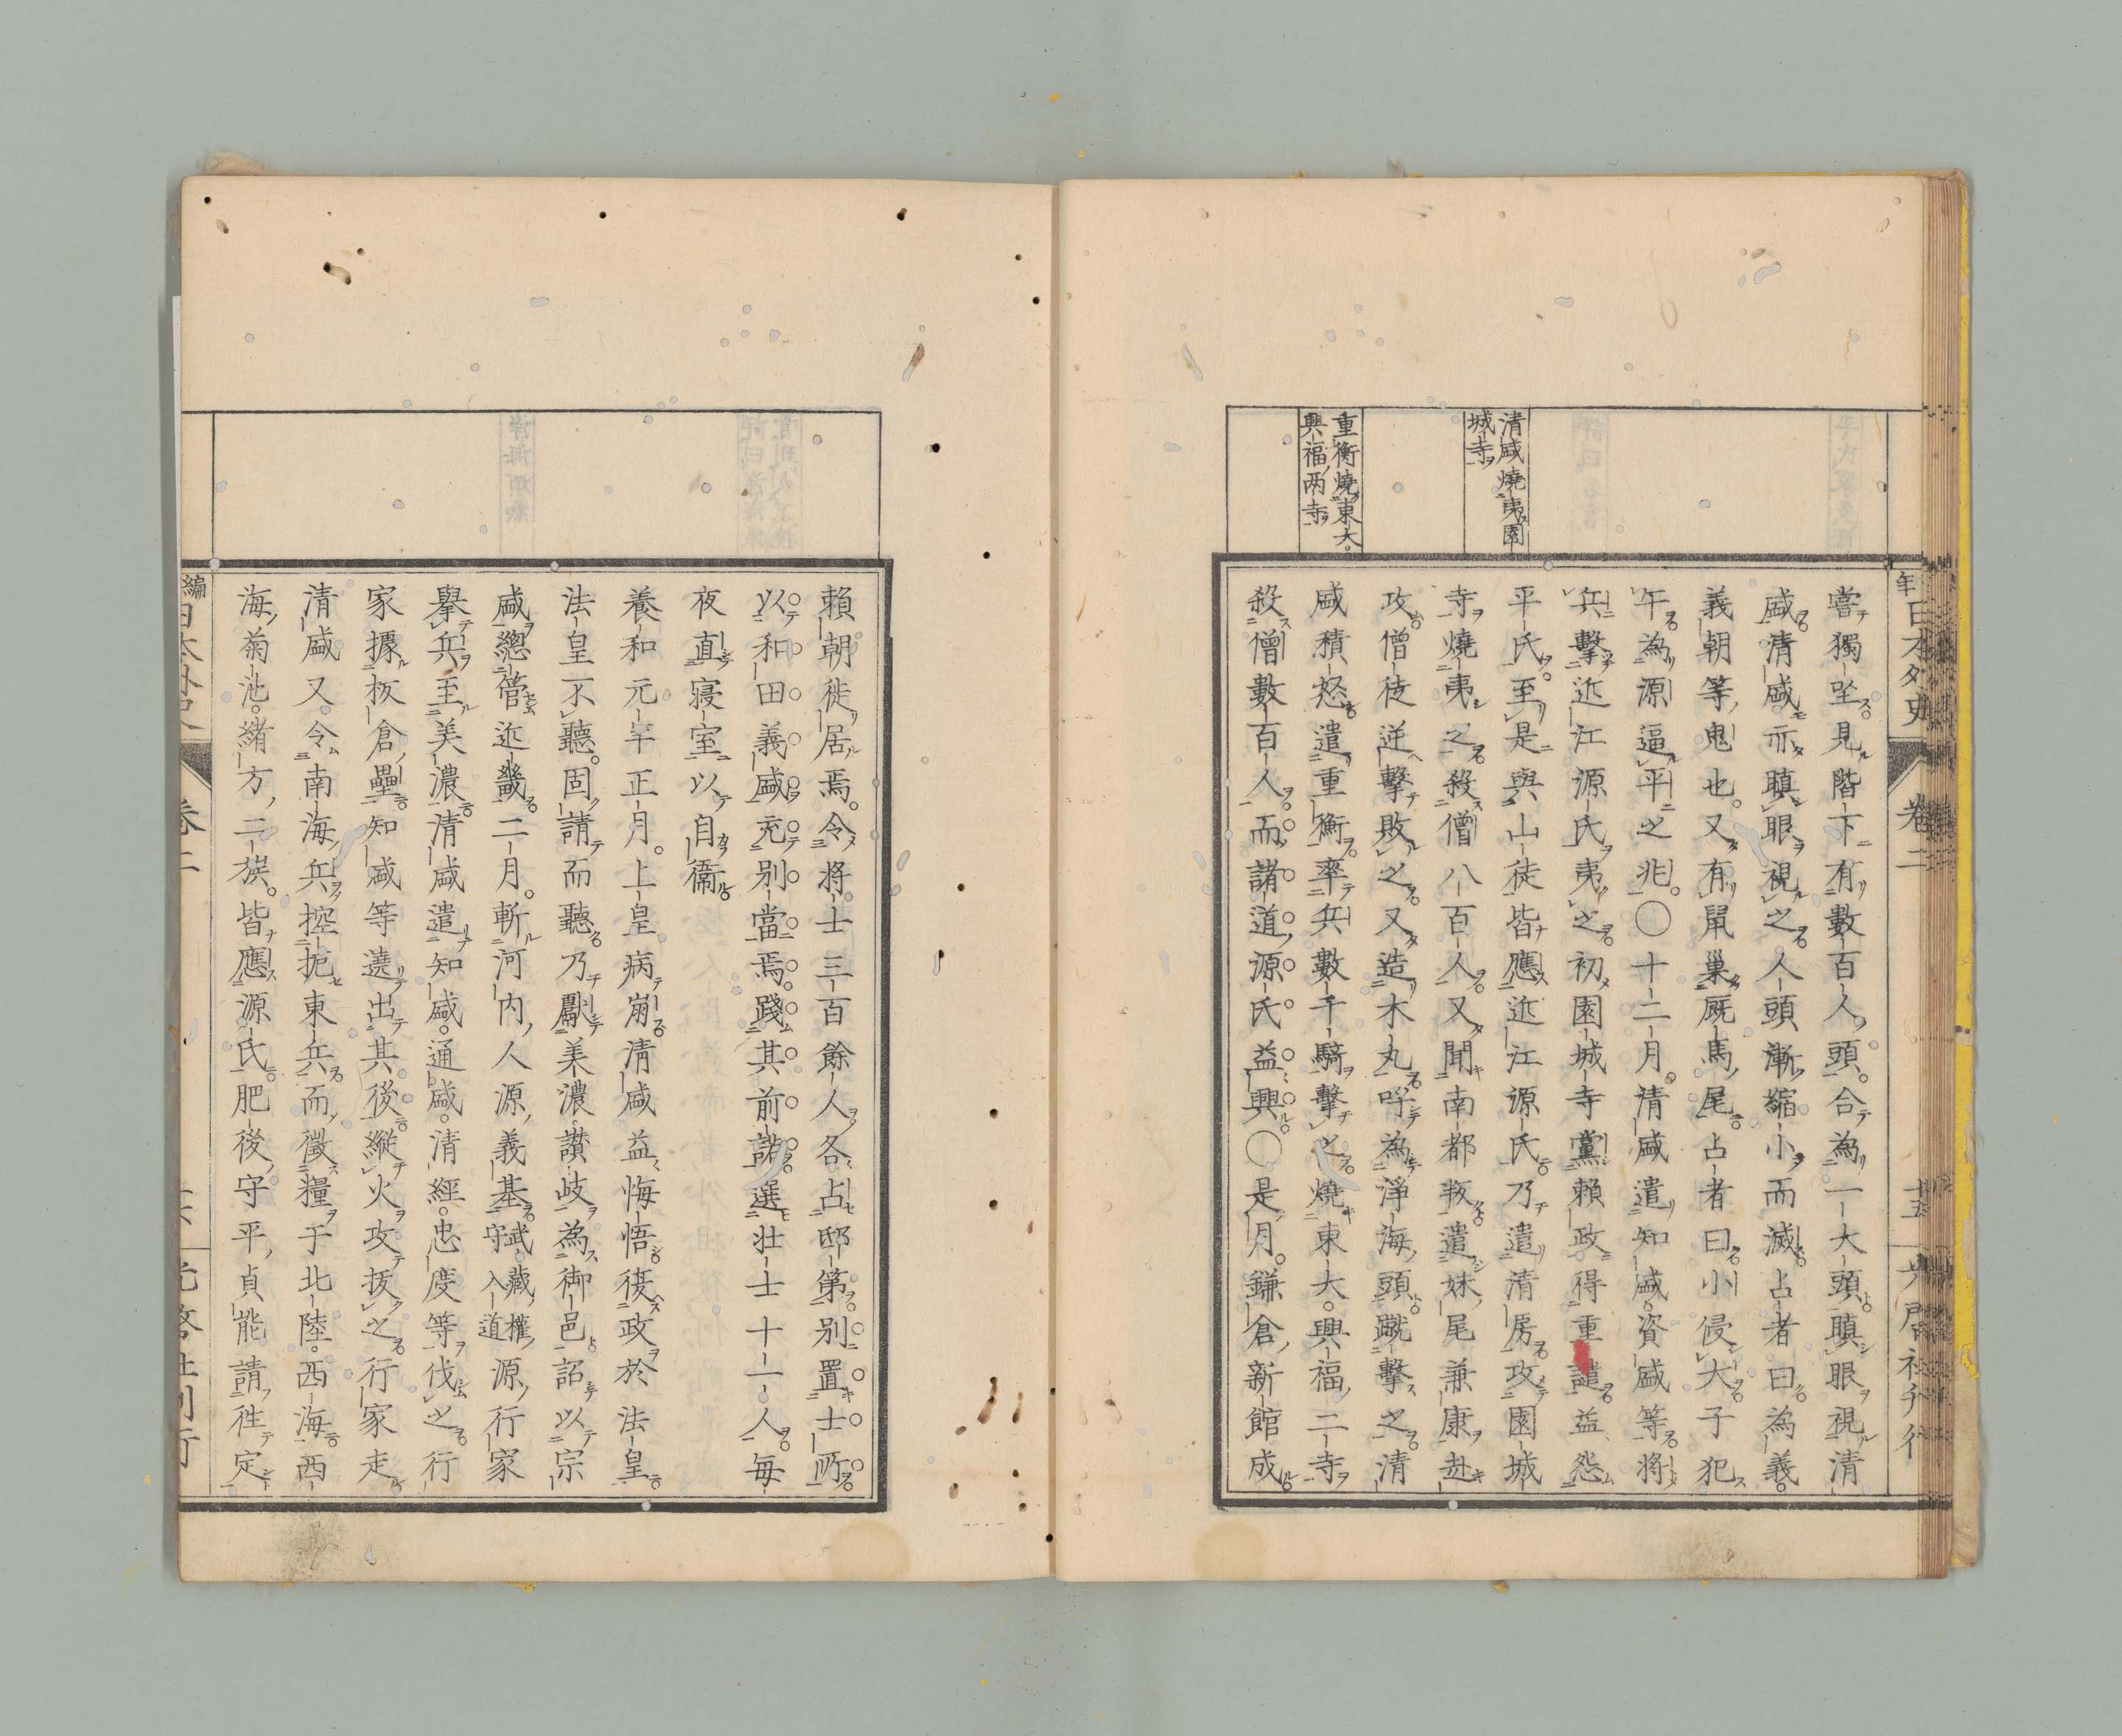 日本外史 卷二 十五
清盛燒夷園
城寺
重衡燒東大
興福兩寺
嘗獨坐見階下有數百人頭合為一大頭瞋眼視清
盛清盛亦瞋眼視之人頭漸縮小而滅占者曰為義
義朝等鬼也又有鼠巢厩馬尾占者曰小侵大子犯
午為源逼平之兆〇十二月清盛遣知盛資盛等將
兵擊近江源氏夷之初園城寺黨賴政得重譴益怨
平氏至是與山徒皆應近江源氏乃遣清房攻園城
寺燒夷之殺僧八百人又聞南都叛遣妹尾兼康赴
攻僧徒逆擊敗之又造木丸呼為淨海頭蹴擊之清
盛積怒遣重衡率兵數千騎擊之燒東大興福二寺
殺僧數百人而諸道源氏益興〇是月鎌倉新館成
賴朝徙居焉令將士三百餘人各占邸第別置士所
以和田義盛充別當焉踐其前諾選壯士十一人每
夜直寢室以自衞
養和元年正月上皇病崩清盛益悔悟復政於法皇
法皇不聽固請而聽乃獻美濃讚岐為御邑詔以宗
盛總管近畿二月斬河內人源義基武藏權守入道源行家
舉兵至美濃清盛遣知盛通盛清經忠度等伐之行
家據板倉壘知盛等遶出其後縱火攻拔之行家走
清盛又令南海兵控扼東兵而徵糧于北陸西海西
海菊池緒方二族皆應源氏肥後守平貞能請往定
編